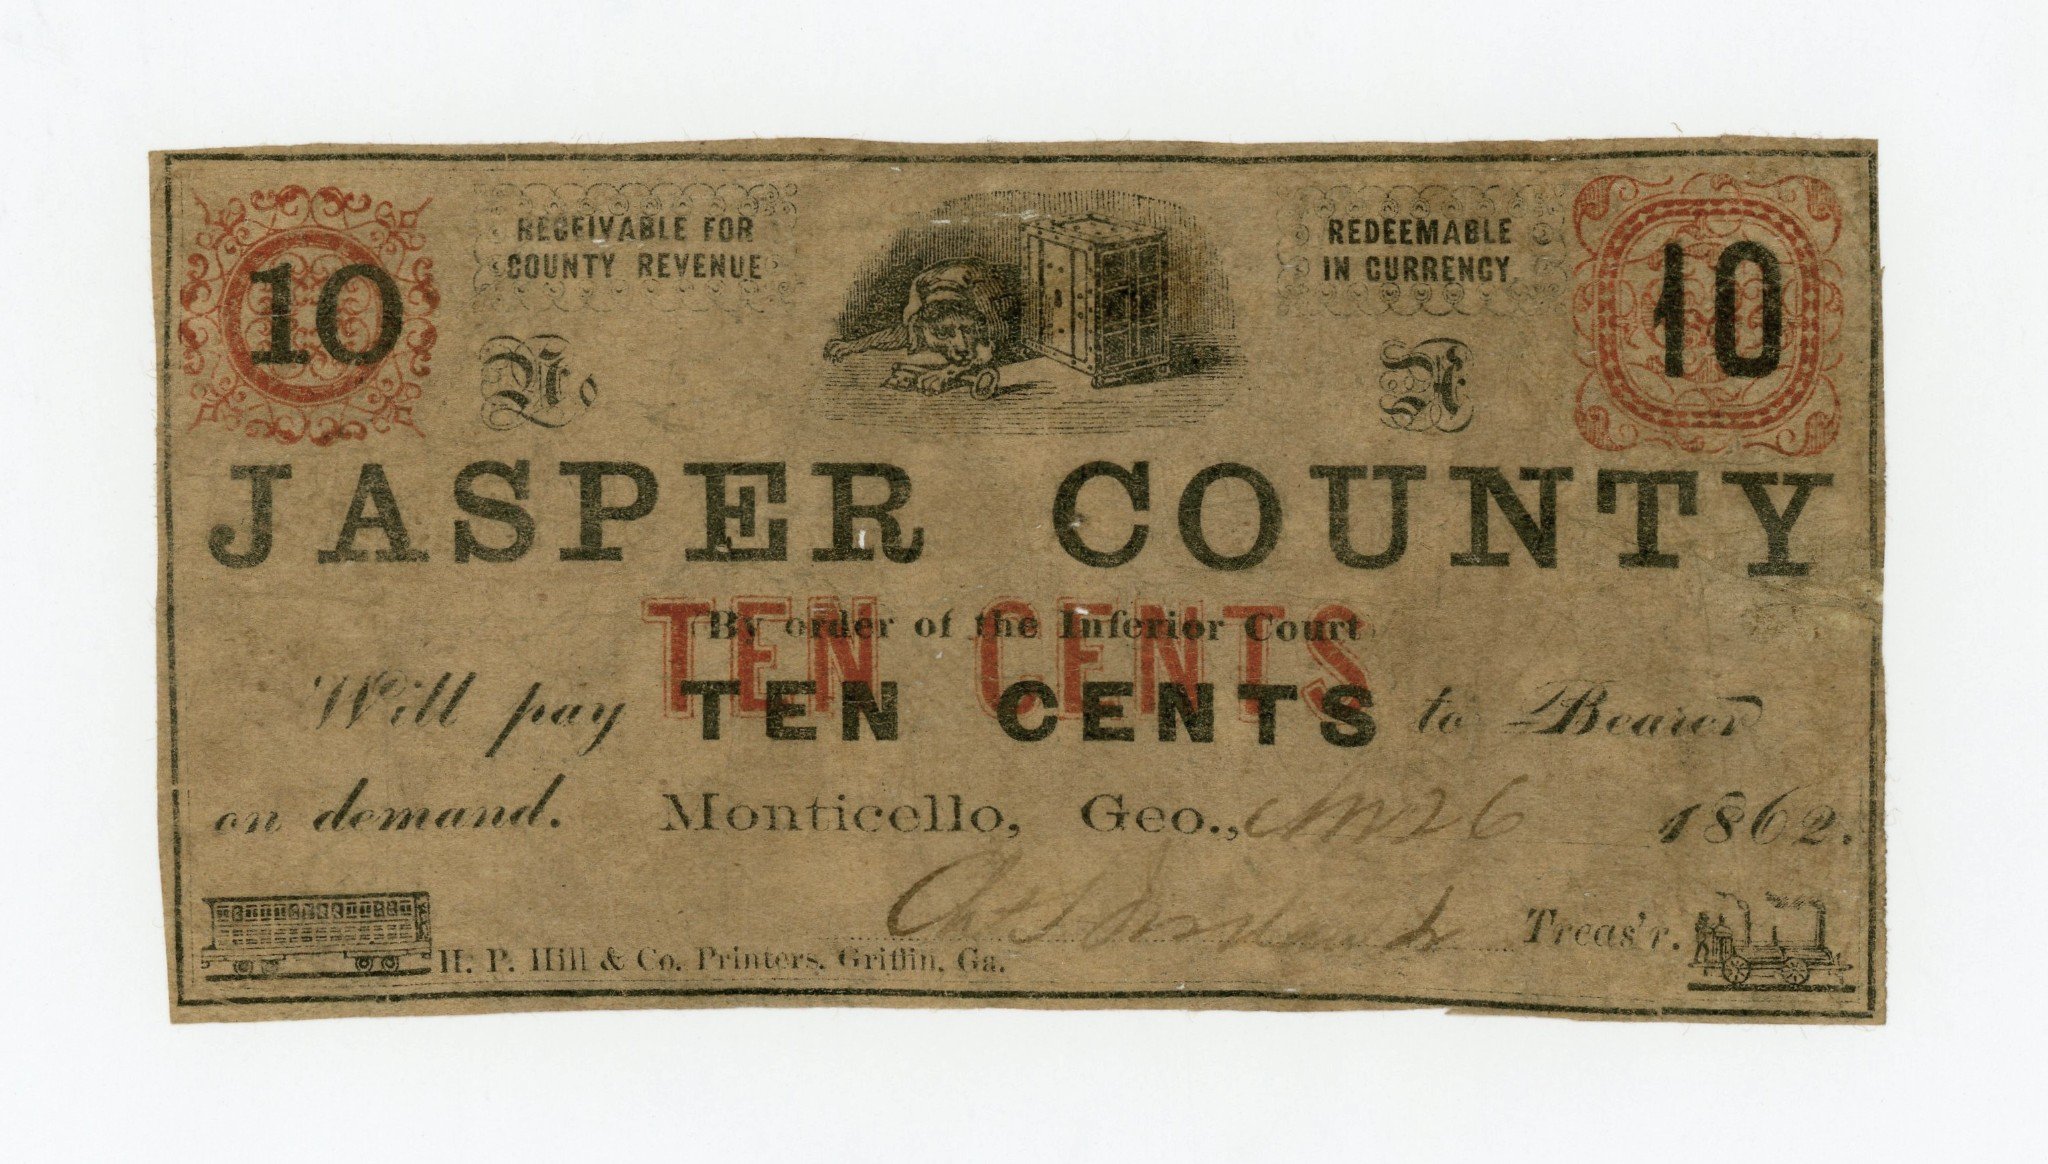 10
RECEIVABLE FOR
COUNTY REVENUE
REDEEMABLE
IN CURRENCY
10
No
A
JASPER COUNTY
TEN CENTS
By order of the Inferior Court
Will pay TEN CENTS to Bearer
on demand. Monticello, Geo., 26 1862.
Treas'r.
H. P. Hill & Co. Printers, Griffin, Ga.